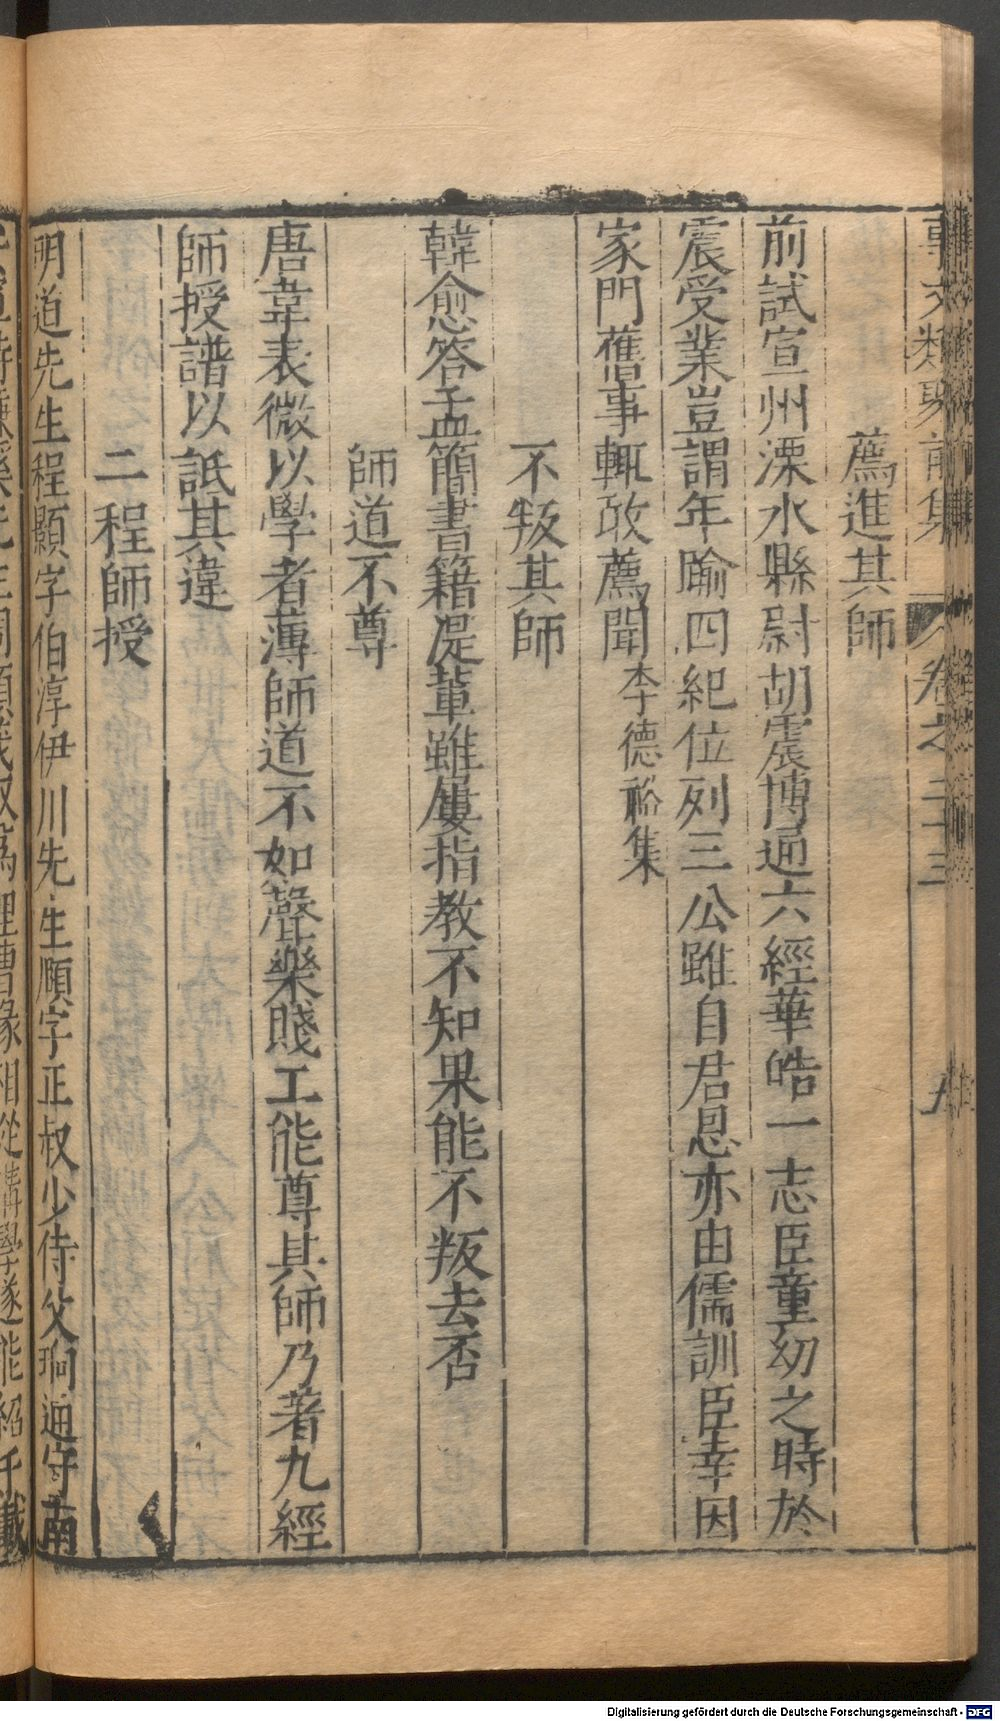 事文類聚前集 卷之三十三
薦進其師
前試宣州溧水縣尉胡震博通六經華皓一志臣童幼之時於
震受業豈謂年踰四紀位列三公雖自君恩亦由儒訓臣幸因
家門舊事輒敢薦聞李德裕集
不叛其師
韓愈答孟簡書籍湜輩雖屢指教不知果能不叛去否
師道不尊
唐韋表微以學者薄師道不如聲樂賤工能尊其師乃著九經
師授譜以詆其違
二程師授
明道先生程顥字伯淳伊川先生頤字正叔少侍父珦通守南
先生周惇為理曹掾相從講學遂能紹千載
Digitalisierung gefördert durch die Deutsche Forschungsgemeinschaft - DFG